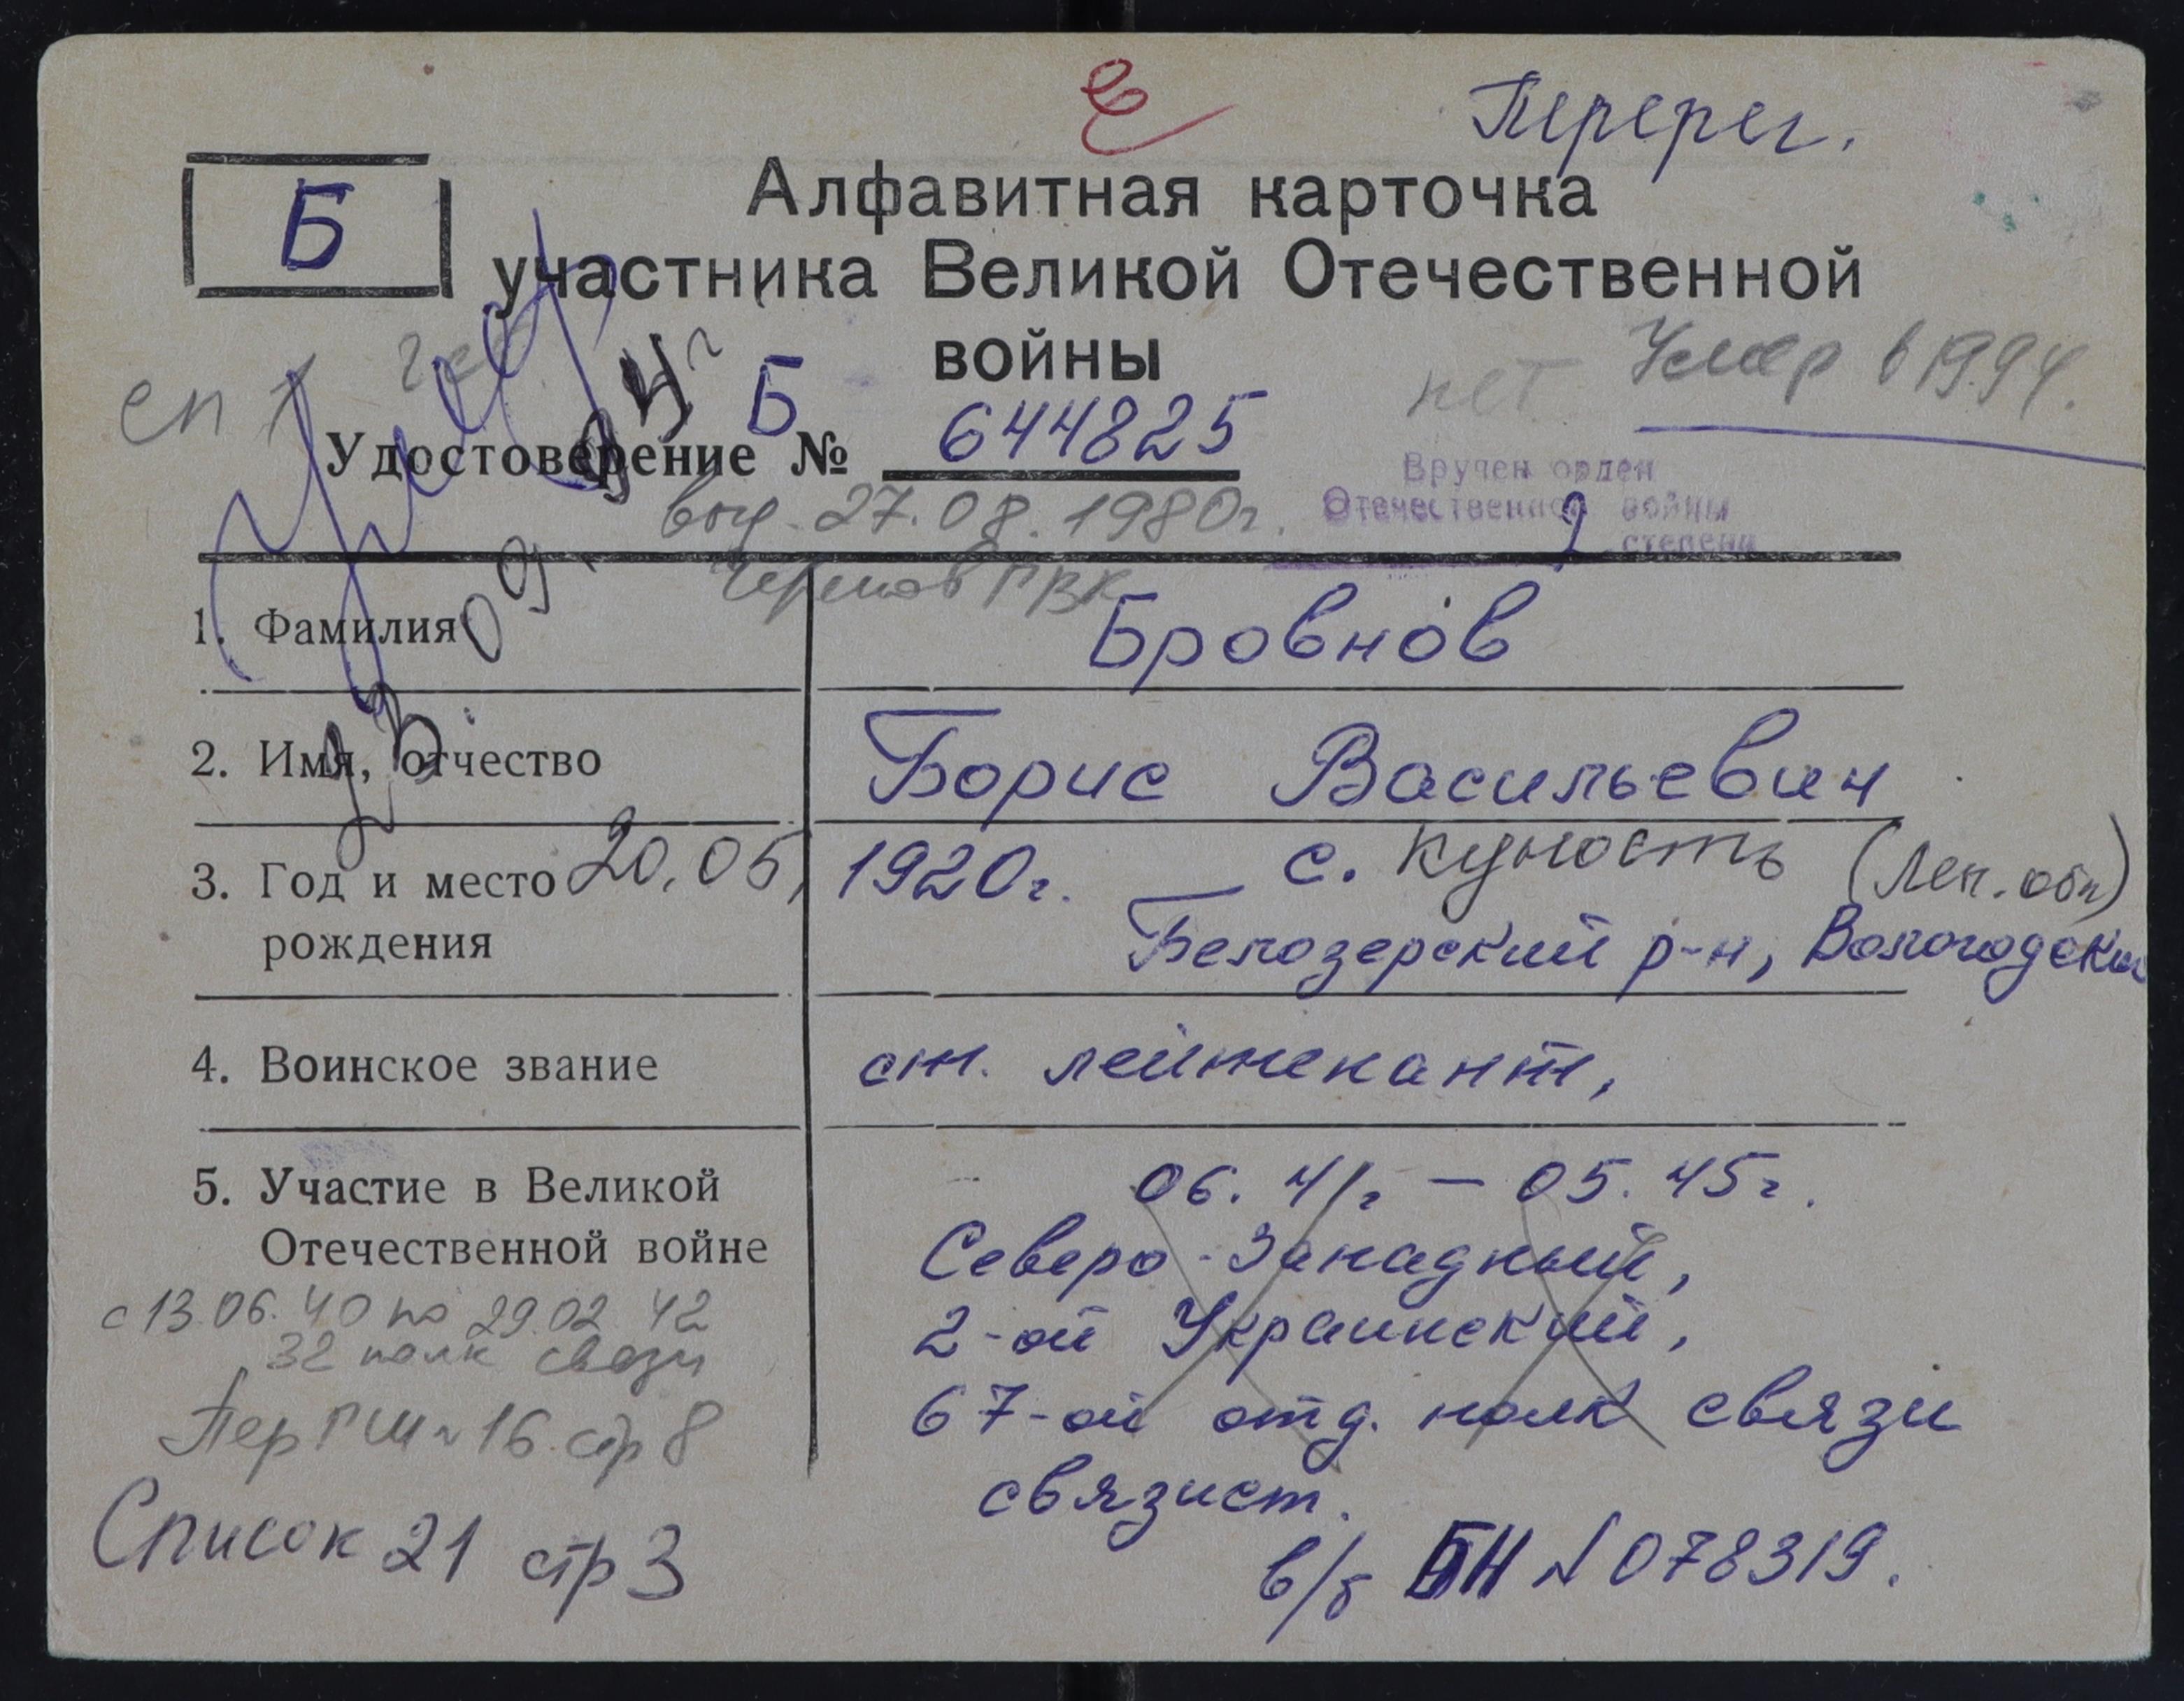 Перерег.
Б
Алфавитная карточка
участника Великой Отечественной
войны
нет Умер в 1994.
сп 1
Удостоверение Б № 644825
выд. 27.08.1980г.
Черепов ГВК
Вручен орден
Отечественной войны
2 степени
1. Фамилия Бровнов
2. Имя, отчество Борис Васильевич
3. Год и место 20.05, 1920г. с. Куность (Лен. обл)
рождения Белозерский р-н, Вологодски
4. Воинское звание ст. лейтенант,
5. Участие в Великой 06. 41г – 05. 45г.
Отечественной войне Северо-Западный,
2-ой Украинский,
67-ой отд. полк связи
связист.
с 13.06.40 по 29.02.42
32 полк связи
Пер ГШ 16 стр 8
Список 21 стр 3
в/б БН № 078319.